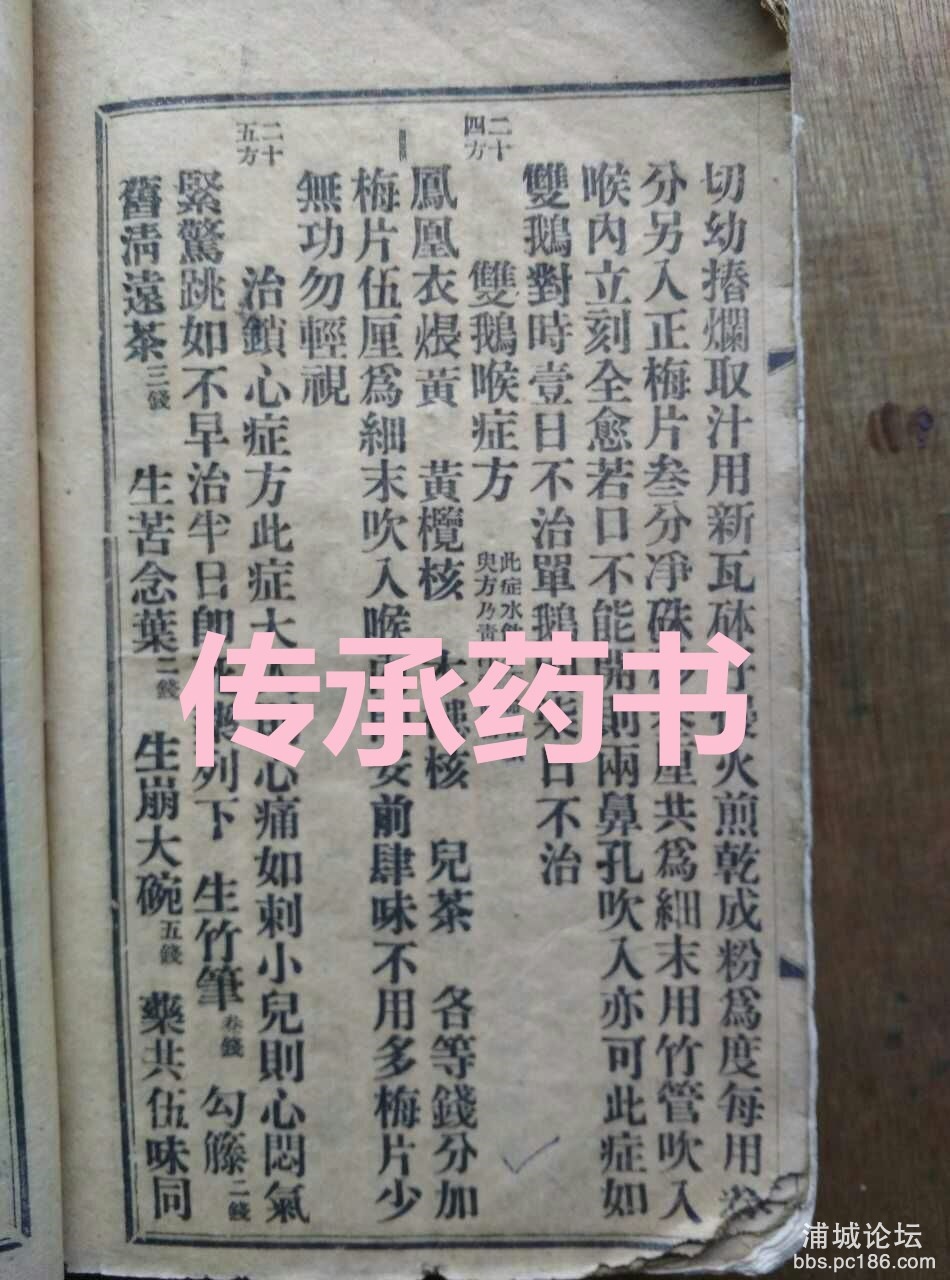 切幼摏爛取汁用新瓦砵 火煎乾成粉爲度每用
分另入正梅片叁分凈硃 厘共爲細末用竹管吹入
喉內立刻全愈若口不能開則兩鼻孔吹入亦可此症如
雙鵝對時壹日不治單鵝 日不治
二十四方
雙鵝喉症方
此症水
與方乃
鳳凰衣煨黃 黃欖核 核 兒茶 各等錢分加
梅片伍厘爲細末吹入喉 安前肆味不用多梅片少
無功勿輕視
二十五方
治鎖心症方此症大 心痛如刺小兒則心悶氣
緊驚跳如不早治半日卽 列下 生竹筆叁錢 勾籐二錢
舊清遠茶三錢 生苦念葉二錢 生崩大碗五錢 藥共伍味同
传承药书
浦城论坛
bbs.pc186.com